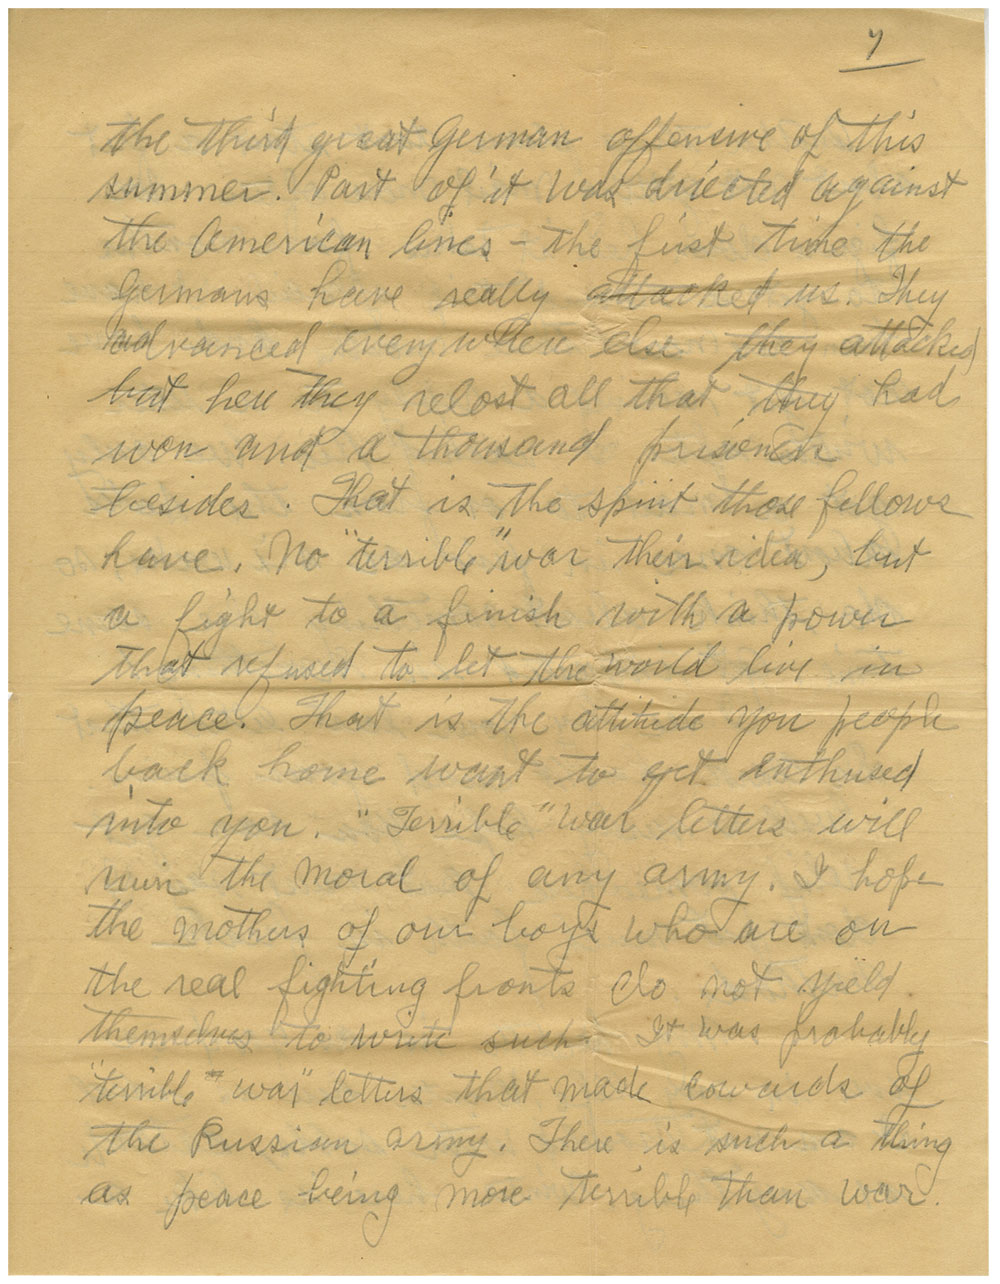 7
the third great German offensive of this
summer. Part of it was directed against
the American lines - the first time the
Germans have really attacked us. They
advanced everywhere else they attacked
but here they relost all that they had
won and a thousand prisoners
besides. That is the spirit those fellows
have. No "terrible" war their idea, but
a fight to a finish with a power
that refused to let the world live in
peace. That is the attitude you people
back home want to get enthused
into you. "Terrible" war letters will
ruin the moral of any army. I hope
the mothers of our boys who are on
the real fighting fronts do not yield
themselves to write such. It was probably
"terrible" war" letters that made cowards of
the Russian army. There is such a thing
as peace being more terrible than war.